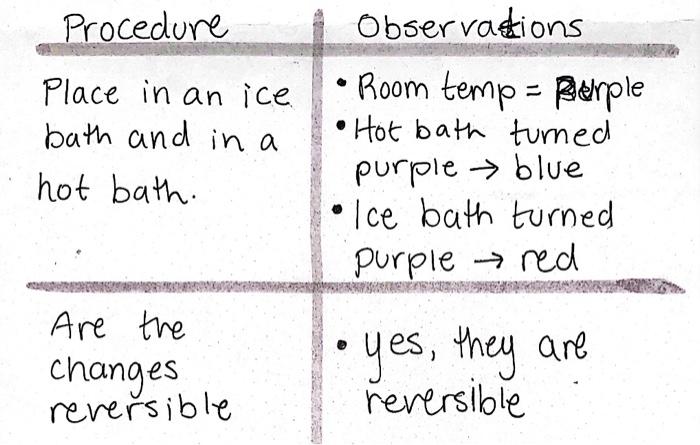 Procedure
Observations
Place in an ice
bath and in a
hot bath.
• Room temp = Purple
• Hot bath turned
purple → blue
• Ice bath turned
purple → red
Are the
changes
reversible
• yes, they are
reversible